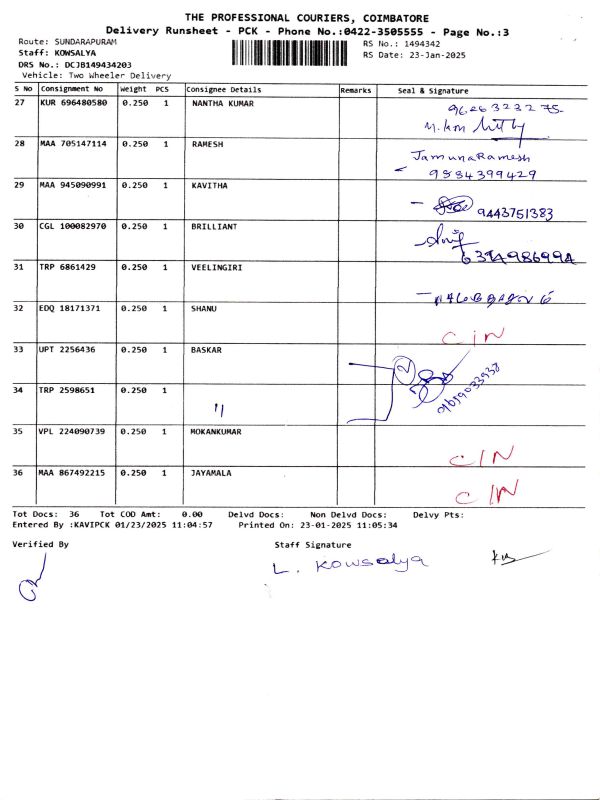 THE PROFESSIONAL COURIERS, COIMBATORE
Delivery Runsheet - PCK - Phone No.:0422-3505555 - Page No.:3
Route: SUNDARAPURAM RS No.: 1494342
Staff: KOWSALYA RS Date: 23-Jan-2025
DRS No.: DCJB149434203
Vehicle: Two Wheeler Delivery
S No Consignment No Weight PCS Consignee Details Remarks Seal & Signature
27 KUR 696480580 0.250 1 NANTHA KUMAR
28 MAA 705147114 0.250 1 RAMESH JamunaRamesh
9884399429
29 MAA 945090991 0.250 1 KAVITHA 9443751383
30 CGL 100082970 0.250 1 BRILLIANT
31 TRP 6861429 0.250 1 VEELINGIRI
32 EDQ 18171371 0.250 1 SHANU CIN
33 UPT 2256436 0.250 1 BASKAR 2
34 TRP 2598651 0.250 1 "
35 VPL 224090739 0.250 1 MOKANKUMAR CIN
36 MAA 867492215 0.250 1 JAYAMALA CIN
Tot Docs: 36 Tot COD Amt: 0.00 Delvd Docs: Non Delvd Docs: Delvy Pts:
Entered By :KAVIPCK 01/23/2025 11:04:57 Printed On: 23-01-2025 11:05:34
Verified By Staff Signature
L. Kowsalya